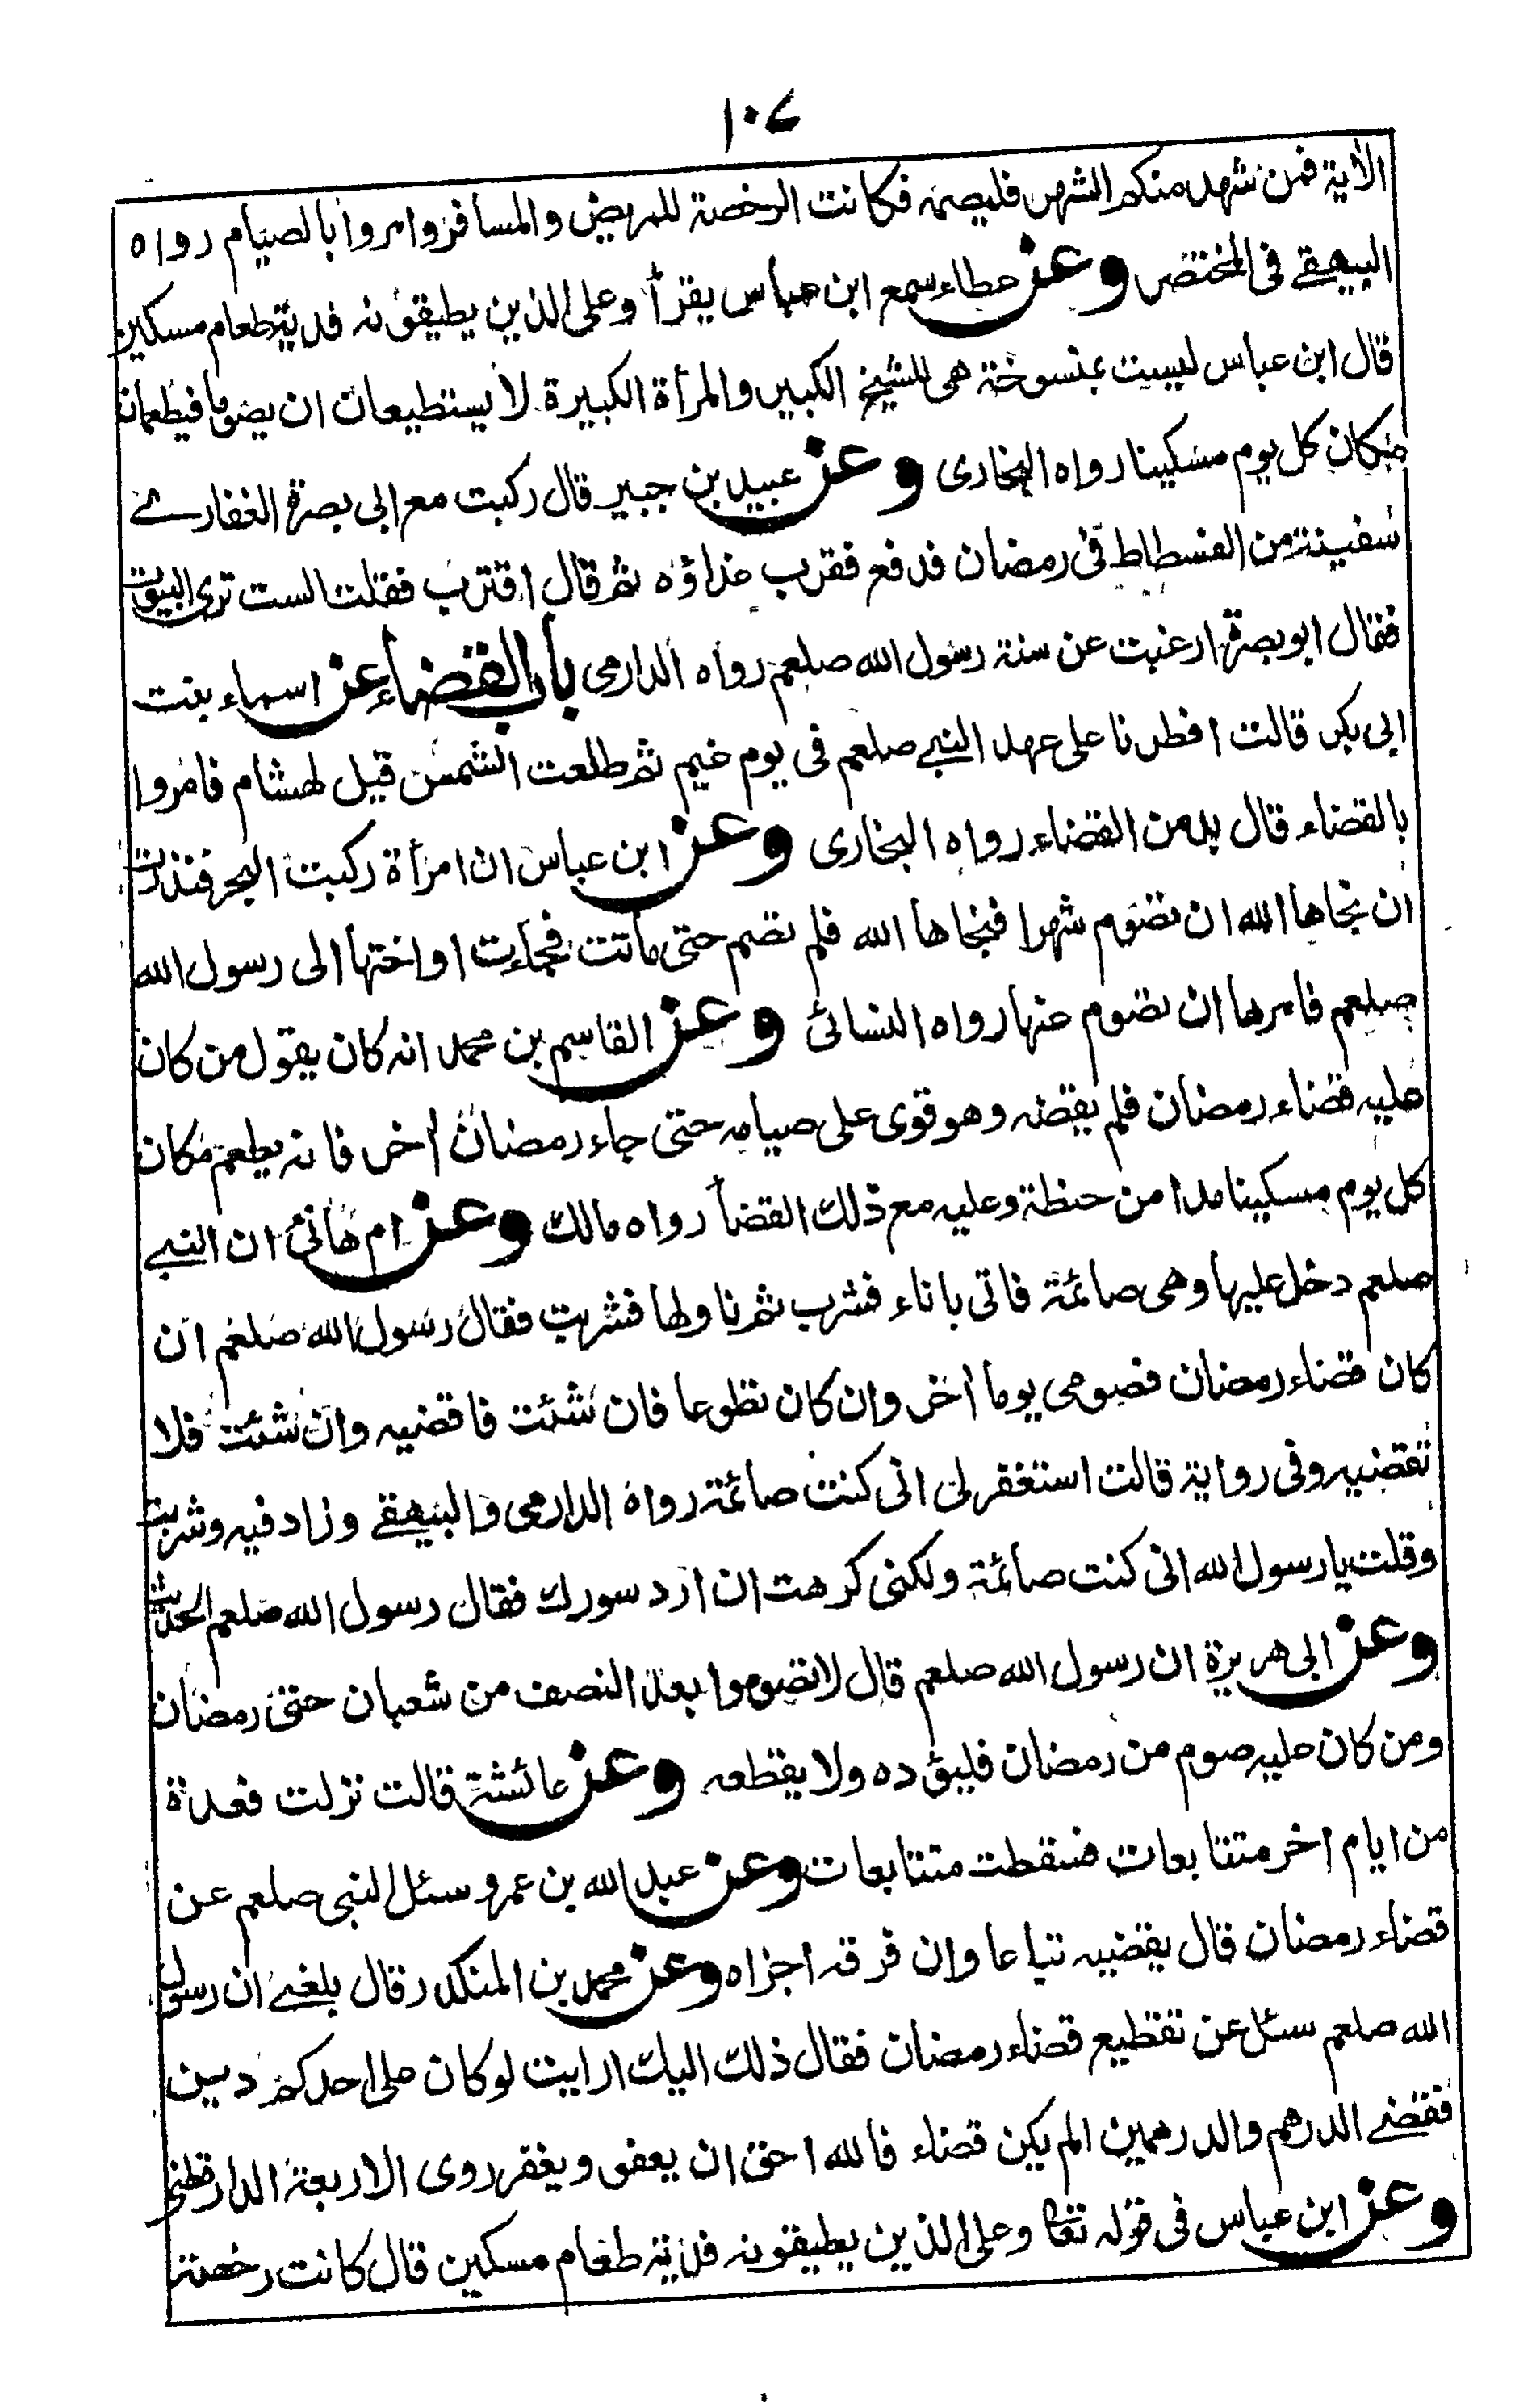 ١٠٧
الأية فمن شهد منكم الشهر فليصمه فكانت الرخصة للمريض والمسافر وامروا بالصيام رواه
البيهقے فى المختصر وعن عطاء سمع ابن عباس يقرأ وعلى الذين يطيقونه فدية طعام مسكين
قال ابن عباس ليست بمنسوخة هى للشيخ الكبير والمرأة الكبيرة لا يستطيعان ان يصوما فيطعمان
مكان كل يوم مسكينا رواه البخارى وعن عبيد بن جبير قال ركبت مع ابى بصرة الغفارے
سفينة من الفسطاط فى رمضان فدفع فقرب غداؤه ثم قال اقترب فقلت الست ترى البيوت
فقال ابو بصرة ارغبت عن سنة رسول الله صلعم رواه الدارمى باب القضاء عن اسماء بنت
ابى بكر قالت افطرنا على عهد النبے صلعم فى يوم غيم ثم طلعت الشمس قيل لهشام فامروا
بالقضاء قال بد من القضاء رواه البخارى وعن ابن عباس ان امرأة ركبت البحر فنذرت
ان نجاها الله ان تصوم شهرا فنجاها الله فلم تصم حتى ماتت فجاءت اواختها الى رسول الله
صلعم فامرها ان تصوم عنها رواه النسائى وعن القاسم بن محمد انه كان يقول من كان
عليه قضاء رمضان فلم يقضه وهو قوى على صيامه حتى جاء رمضان أخر فانه يطعم مكان
كل يوم مسكينا مدا من حنطة وعليه مع ذلك القضأ رواه مالك وعن ام هانئ ان النبے
صلعم دخل عليها وهى صائمة فاتى باناء فشرب ثم ناولها فشربت فقال رسول الله صلعم ان
كان قضاء رمضان فصومى يوما أخر وان كان تطوعا فان شئت فاقضيه وان شئت فلا
تقضيه وفى رواية قالت استغفر لى انى كنت صائمة رواه الدارمى والبيهقے وزاد فيه وشربت
وقلت يا رسول الله انى كنت صائمة ولكنى كرهت ان ارد سورك فقال رسول الله صلعم الحديث
وعن ابى هريرة ان رسول الله صلعم قال لا تصوموا بعد النصف من شعبان حتى رمضان
ومن كان عليه صوم من رمضان فليسرده ولا يقطعه وعن عائشة قالت نزلت فعدة
من ايام اخر متتابعات فسقطت متتابعات وعن عبد الله بن عمرو سئل النبى صلعم عن
قضاء رمضان قال يقضيه تباعا وان فرقه اجزاه وعن محمد بن المنكدر قال بلغنے ان رسول
الله صلعم سئل عن تقطيع قضاء رمضان فقال ذلك اليك ارايت لو كان على احدكم دين
فقضے الدرهم والدرهمين الم يكن قضاء فالله احق ان يعفو ويغفر روى الاربعة الدارقطنى
وعن ابن عباس فى قوله تعا وعلى الذين يطيقونه فدية طعام مسكين قال كانت رخصة